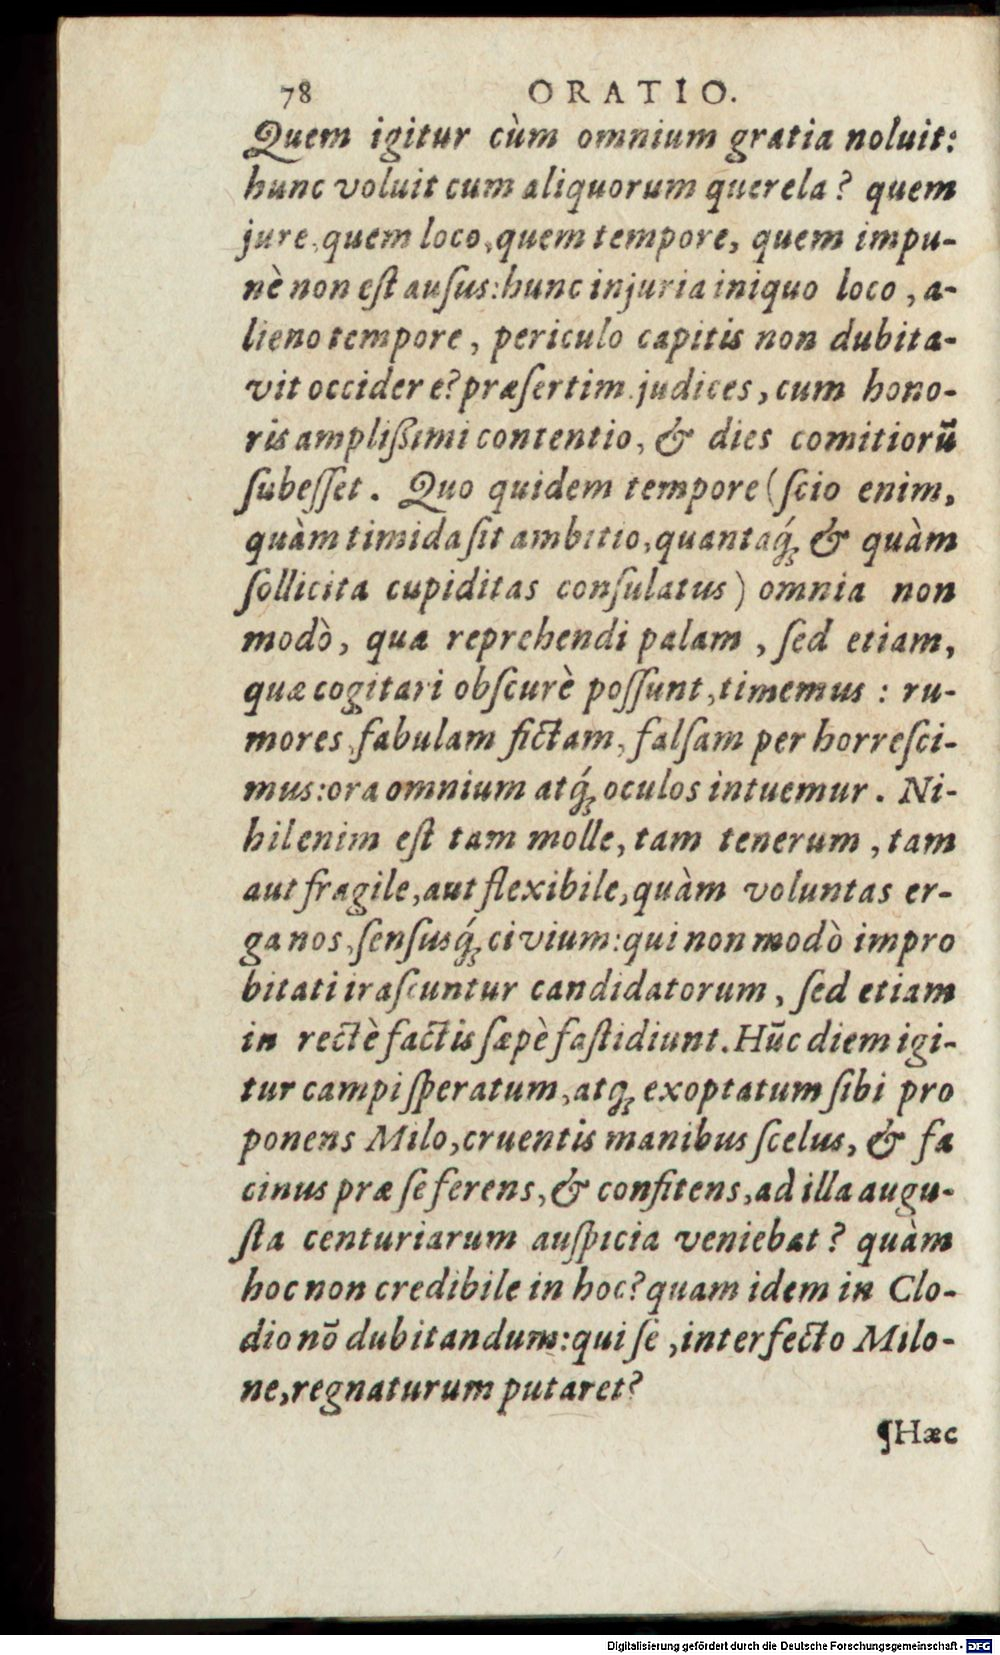 78 ORATIO.
Quem igitur cùm omnium gratia noluit:
hunc voluit cum aliquorum querela? quem
jure, quem loco, quem tempore, quem impu-
nè non eſt auſus: hunc injuria iniquo loco, a-
lieno tempore, periculo capitis non dubita-
vit occidere? præſertim judices, cum hono-
ris ampliſſimi contentio, & dies comitiorū
ſubeſſet. Quo quidem tempore (ſcio enim,
quàm timida ſit ambitio, quantaq́; & quàm
ſollicita cupiditas conſulatus) omnia non
modò, qua reprehendi palam, ſed etiam,
quæ cogitari obſcurè poſſunt, timemus: ru-
mores, fabulam fictam, falſam perhorreſci-
mus: ora omnium atq́; oculos intuemur. Ni-
hil enim eſt tam molle, tam tenerum, tam
aut fragile, aut flexibile, quàm voluntas er-
ga nos, ſenſusq́; civium: qui non modò impro
bitati iraſcuntur candidatorum, ſed etiam
in rectè factis ſæpè faſtidiunt. Hūc diem igi-
tur campi ſperatum, atq; exoptatum ſibi pro
ponens Milo, cruentis manibus ſcelus, & fa
cinus præ ſe ferens, & confitens, ad illa augu-
ſta centuriarum auſpicia veniebat? quàm
hoc non credibile in hoc? quam idem in Clo-
dio nō dubitandum: qui ſe, interfecto Milo-
ne, regnaturum putaret?
¶Hæc
Digitalisierung gefördert durch die Deutsche Forschungsgemeinschaft - DFG